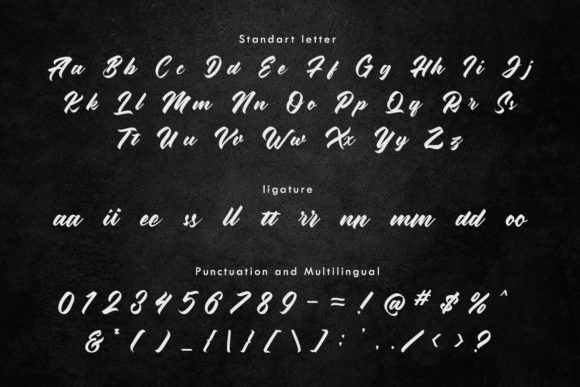 Standart letter
Aa Bb Cc Dd Ee Ff Gg Hh Ii Jj
Kk Ll Mm Nn Oo Pp Qq Rr Ss
Tt Uu Vv Ww Xx Yy Zz
ligature
aa ii ee ss ll tt rr nn mm dd oo
Punctuation and Multilingual
0 1 2 3 4 5 6 7 8 9 - = ! @ # $ % ^
& * ( ) _ { \ } [ \ ] ; ' , . / < > ?